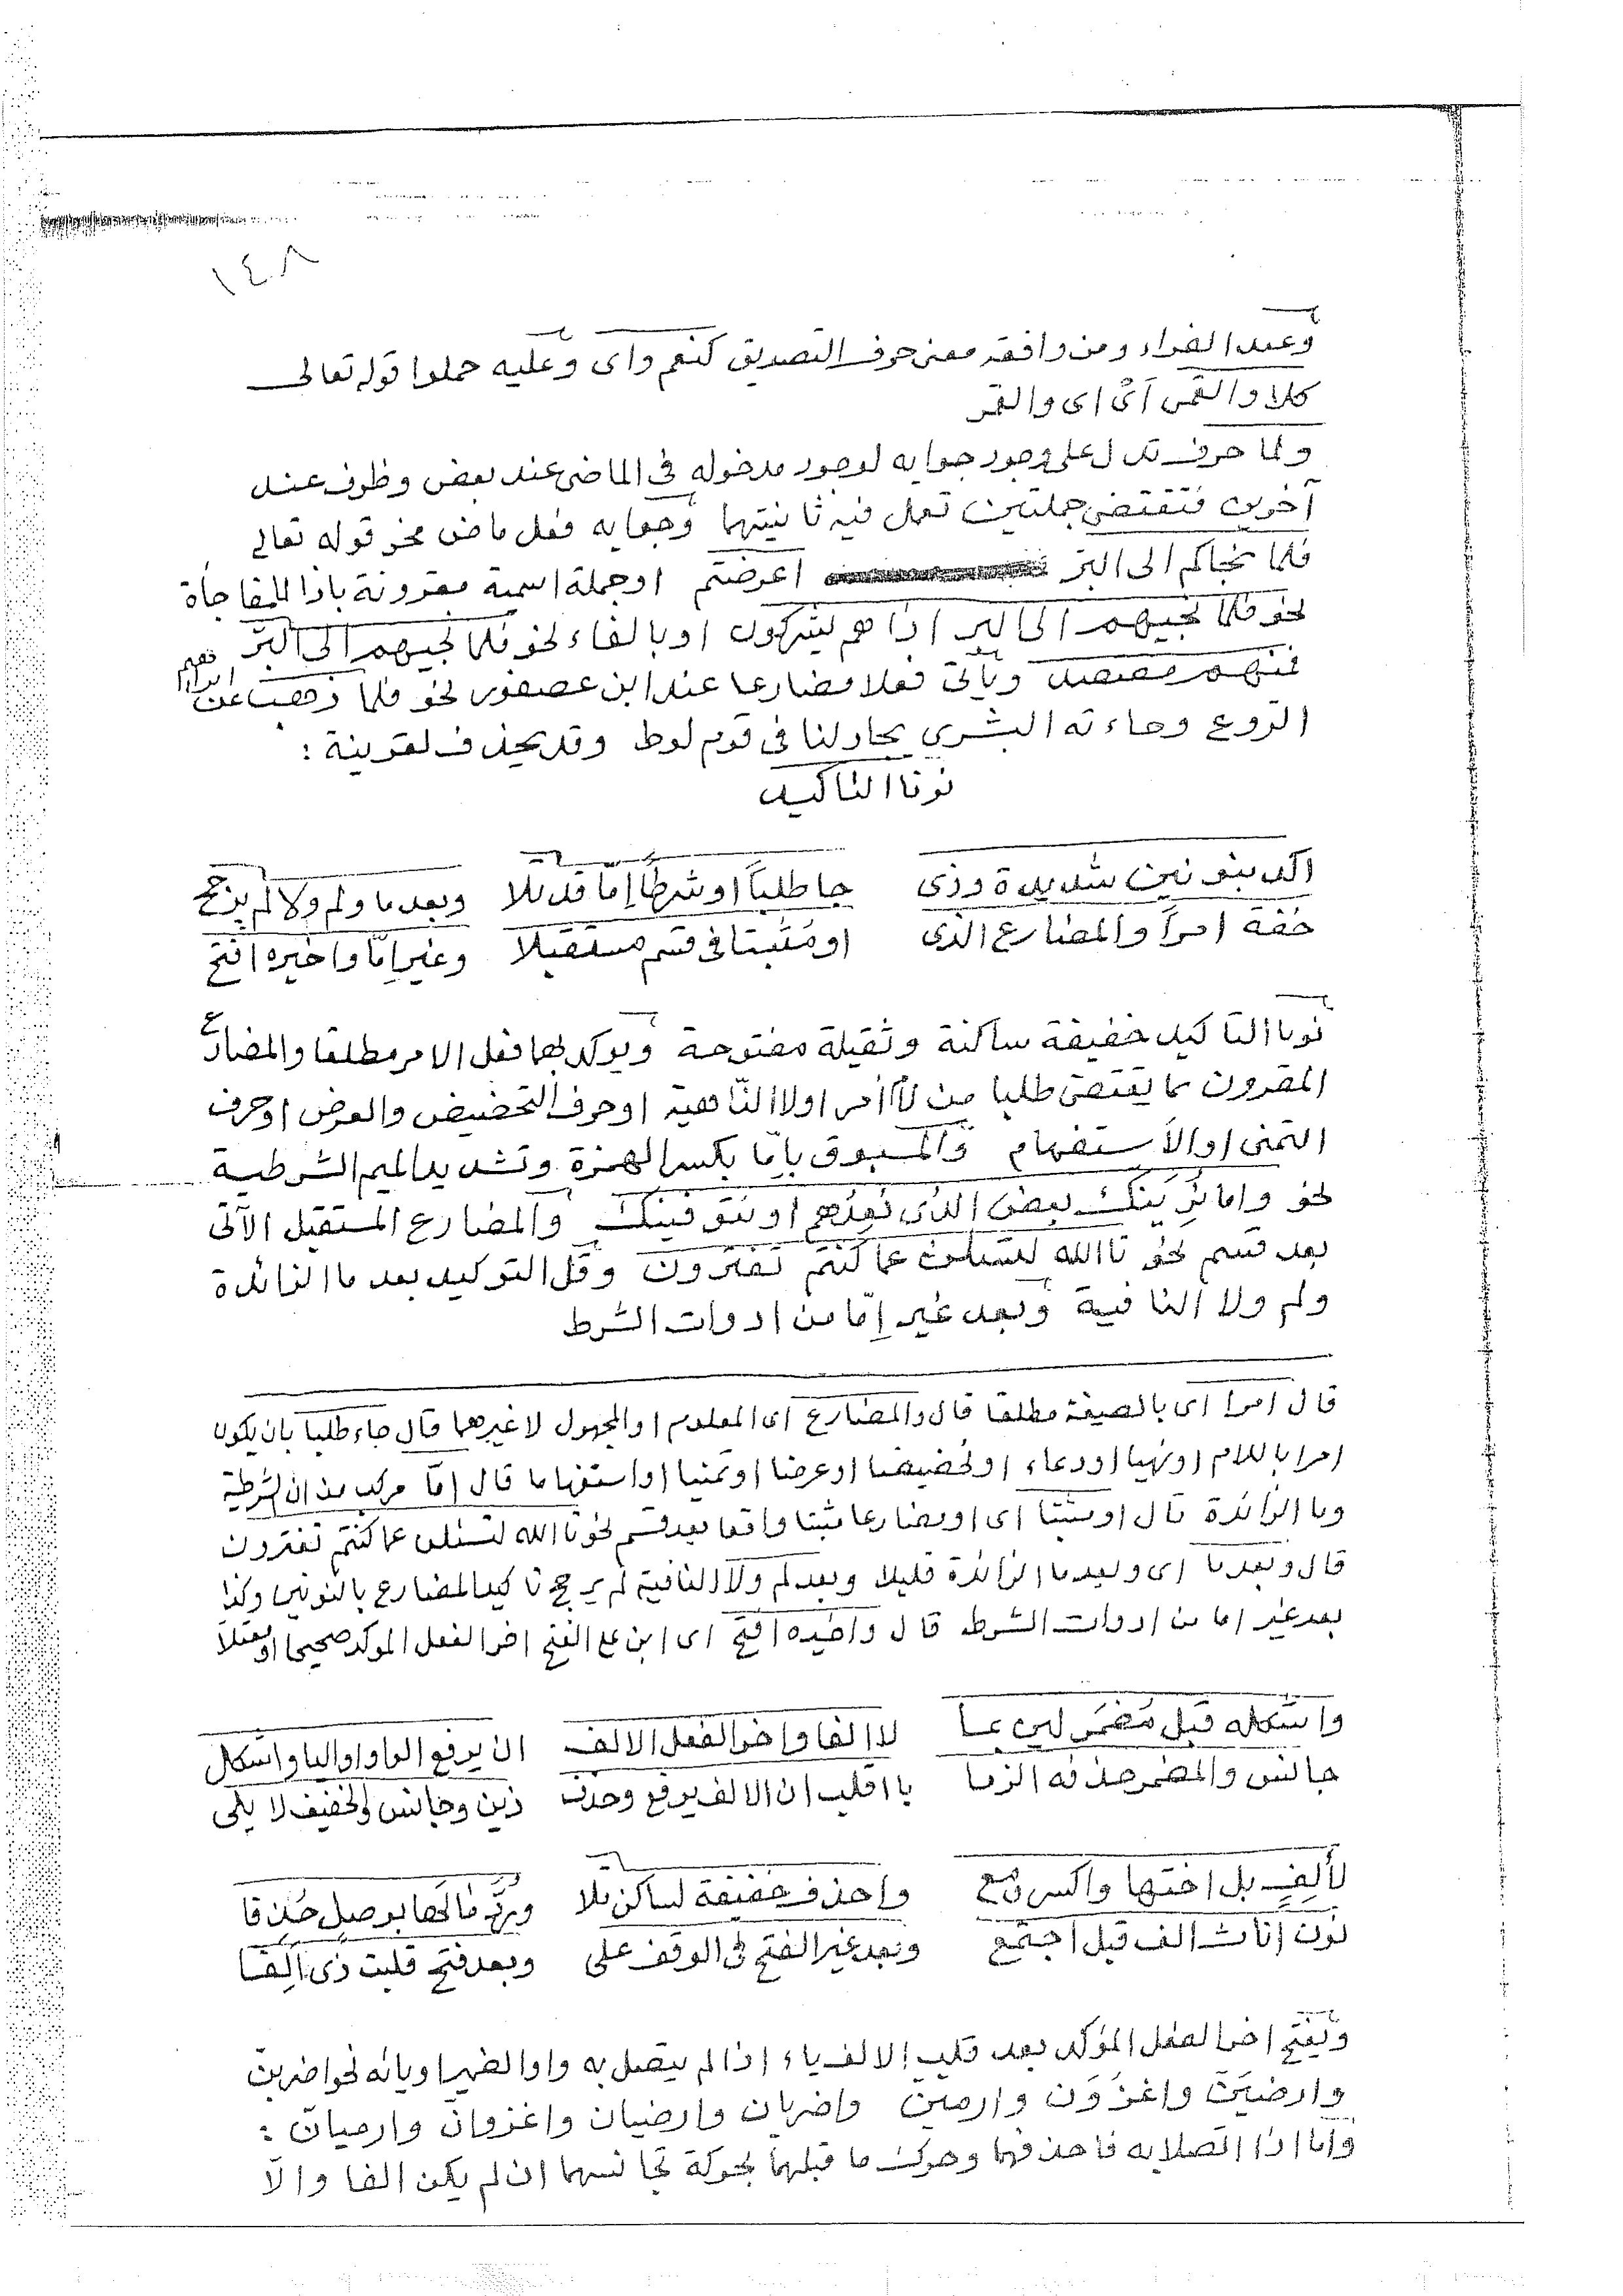 ١٤٨
وعند الفراء ومن وافقه معنى حرف التصديق كنعم واى وعليه حملوا قوله تعالى
كلا والقمر أىْ اى والقمر
ولما حرف تدل على وجود جوابه لوجود مدخوله فى الماضى عند بعض وظرف عند
آخرين فتقتضى جملتين تعمل فيه ثانيتهما وجوابه فعل ماض نحو قوله تعالى
فلما نجاكم الى البر اعرضتم او جملة اسمية مقرونة باذا المفاجأة
نحو فلما نجيهم الى البر اذا هم يشركون او بالفاء نحو فلما نجيهم الى البرّ
فمنهم مقتصد ويأتى فعلا مضارعا عند ابن عصفور نحو فلما ذهب عن ابراهيم
الروع وجاءته البشرى يجادلنا فى قوم لوط وقد يحذف لقرينة :
نونا التاكيد
اكد بنونين شديدة وذى جا طلباً او شرطاً اِمّا قد تلا وبعد ما ولم ولا لم يرجح
خفة امراً والمضارع الذى او مُثبتا فى قسم مستقبلا وغير اِمّا واخيره افتح
نونا التاكيد خفيفة ساكنة وثقيلة مفتوحة ويوكد بهما فعل الامر مطلقا والمضارع
المقرون بما يقتضى طلبا من لام امر او لا النّاهية او حرف التحضيض والعرض او حرف
التمنى او الاستفهام والمسبوق باِمّا بكسر الهمزة وتشديد الميم الشرطية
نحو واما نُرِيَنك بعض الذى نَعِدُهم او نتوفينك والمضارع المستقبل الآتى
بعد قسم نحو تا الله لتسئلن عما كنتم تفترون وقل التوكيد بعد ما الزائدة
ولم ولا النافية وبعد غير اِمّا من ادوات الشرط
قال امرا اى بالصيغة مطلقا قال والمضارع اى المعلوم او المجهول لا غيرهما قال جاء طلبا بان يكون
امرا باللام او نهيا او دعاء او تحضيضا او عرضا او تمنيا او استفهاما قال اِمّا مركب من ان الشرطية
وما الزائدة قال او مثبتا اى او مضارعا مثبتا واقعا بعد قسم نحو تا الله لتسئلن عما كنتم تفترون
قال وبعد ما اى وبعد ما الزائدة قليلا وبعد لم ولا النافية لم يرجح تاكيد المضارع بالنونين وكذا
بعد غير اما من ادوات الشرط قال واخيره افتح اى ابن على الفتح اخر الفعل الموكد صحيحا او معتلا
واشكله قبل مُضمَر لين بما لا الفا واخر الفعل الالف ان يرفع الواو او اليا واشكل
جانس والمضمر حذفه الزما يا اقلب ان الالف يرفع وحذف ذين وجانس والخفيف لا يلى
لألفٍ بل اختها واكسر مع واحذف خفيفة لساكن تلا وردّ ما لها بوصل حُذفا
نون إناث الف قبل اجتمع وبعد غير الفتح فى الوقف على وبعد فتح قلبت ذى اَلِفا
ويفتح اخر الفعل المؤكد بعد قلب الالف ياء اذا لم يتصل به واو الضمير او يائه نحو اضربن
وارضيَنّ واغزُوَن وارمين واضربان وارضيان واغزوان وارميان :
واما اذا اتصلا به فاحذفهما وحرك ما قبلهما بحركة تجانسهما ان لم يكن الفا والّا